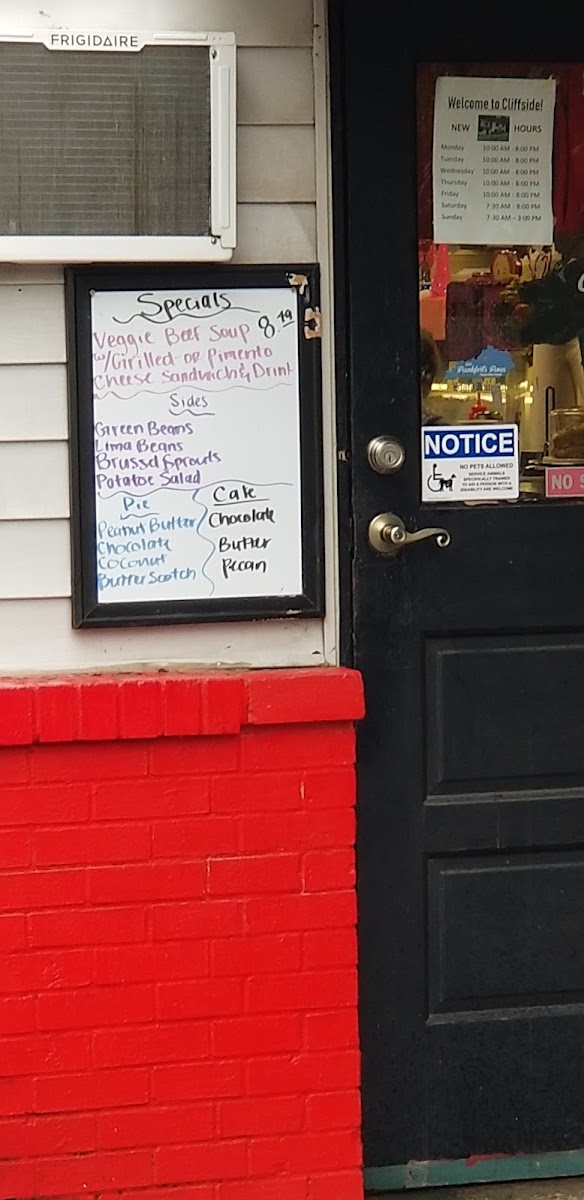 FRIGIDAIRE
Specials
Veggie Beef Soup 8.49
w/Girilled or Pimento
Cheese Sandwich & Drink
Sides
Green Beans
Lima Beans
Brussel Sprouts
Potatoe Salad
Pie
Peanut Butter
Chocolate
Coconut
Butter Scotch
Cake
Chocolate
Butter
Pecan
Welcome to Cliffside!
NEW HOURS
Monday 10:00 AM - 8:00 PM
Tuesday 10:00 AM - 8:00 PM
Wednesday 10:00 AM - 8:00 PM
Thursday 10:00 AM - 8:00 PM
Friday 10:00 AM - 8:00 PM
Saturday 7:30 AM - 8:00 PM
Sunday 7:30 AM - 3:00 PM
NOTICE
NO PETS ALLOWED
SERVICE ANIMALS
SPECIFICALLY TRAINED
TO AID A PERSON WITH A
DISABILITY ARE WELCOME
NO S